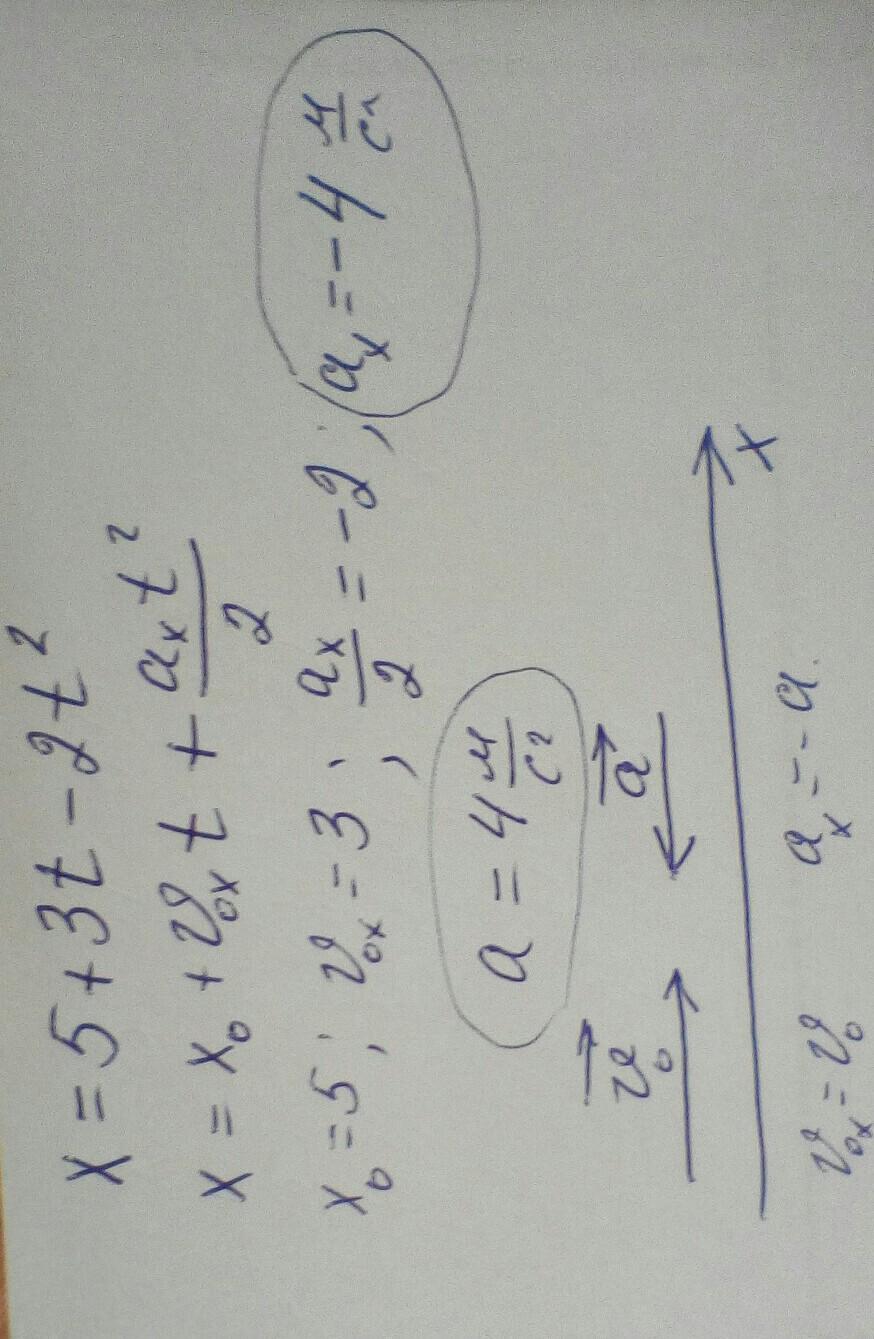 x = 5 + 3t - 2t²
x = x₀ + v₀ₓt + aₓt²/2
x₀ = 5; v₀ₓ = 3; aₓ/2 = -2; aₓ = -4 м/с²
a = 4 м/с²
v⃗₀ a⃗
x
v₀ₓ = v₀ aₓ = -a